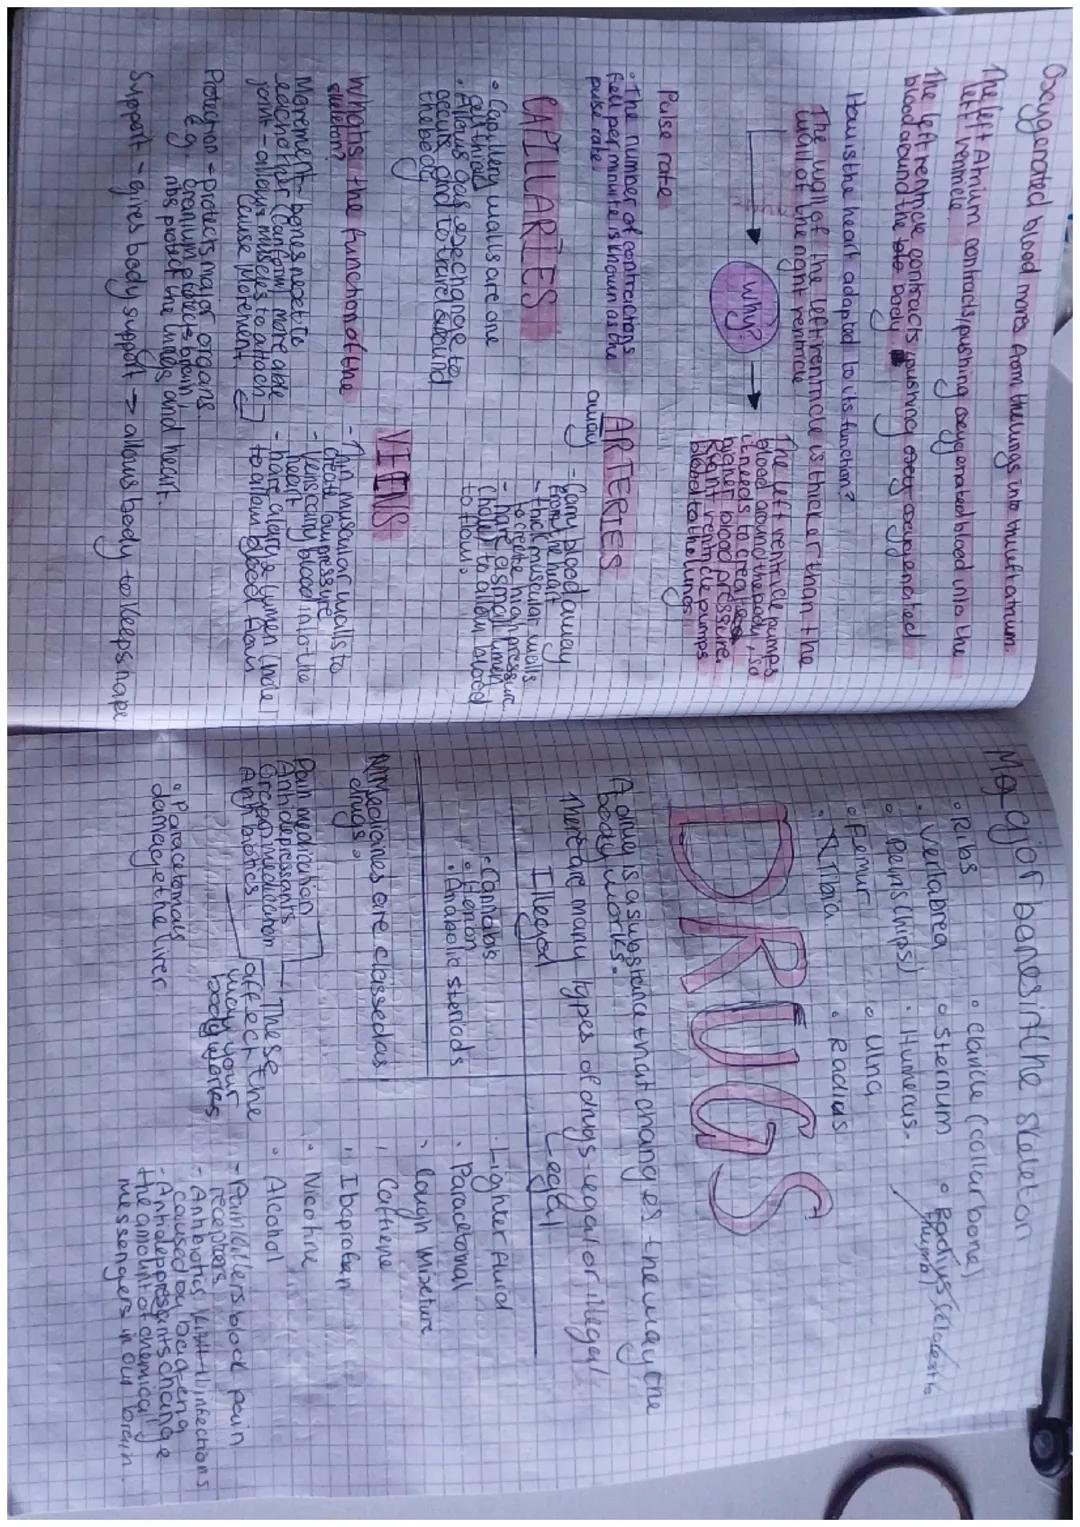 Oxygenated blood moves from the lungs into the left atrium.
The left Atrium contracts, pushing oxygenated blood into the
left ventricle.
The left ventricle contracts, pushing oxygenated
blood around the body
How is the heart adapted to its function?
The wall of the left ventricle is thicker than the
wall of the right ventricle
Why?
The left ventricle pumps
blood around the body, so
it needs to create
higher blood pressure.
Right ventricle pumps
blood to the lungs
Pulse rate
• The number of contractions
felt per minute is known as the
pulse rate.
CAPILLARIES
• Capillery walls are one
cell thick
• Allows gas exchange to
occur and to travel around
the body
ARTERIES
away
- Carry blood away
from the heart
- thick muscular walls
to create high pressure
- have a small lumen
(hole) to allow blood
to flow.
VEINS
- Thin muscular walls to
create low pressure
- Veins carry blood into the
heart
- have a large lumen (hole)
to allow blood flow
What is the function of the
skeleton?
Movement - bones next to
each other can form moveable
joint - allows muscles to attach
cause Movement
Protection - protects major organs
e.g. cranium protects brain,
ribs protect the lungs and heart.
Support - gives body support → allows body to keep shape
Major bones in the skeleton
• Ribs
• Vertabrea
• Pelvis (hips)
• Femur
• Tibia
• Clavicle (collar bone)
• Sternum
• Humerus.
• Ulna
• Radius
DRUGS
A drug is a substance that changes the way the
body works.
There are many types of drugs - legal or illegal
Illegal
• Cannabis
• Heroin
• Anabolic steriods
Legal
• Lighter fluid
• Paracetomal
• Cough Mixeture
Caffiene
Ibaprofen
• Nicotine
• Alcohol
Medicines are classed as
drugs.
Pain medication
Antidepressants
medication
Antibiotics
These
affect the
way your
body works
- Painkillers block pain
receptors
- Antibiotics kill infections
caused by bacteria
- Antidepressants change
the amount of chemical
messengers in our brain.
• Paracetomals
damage the liver